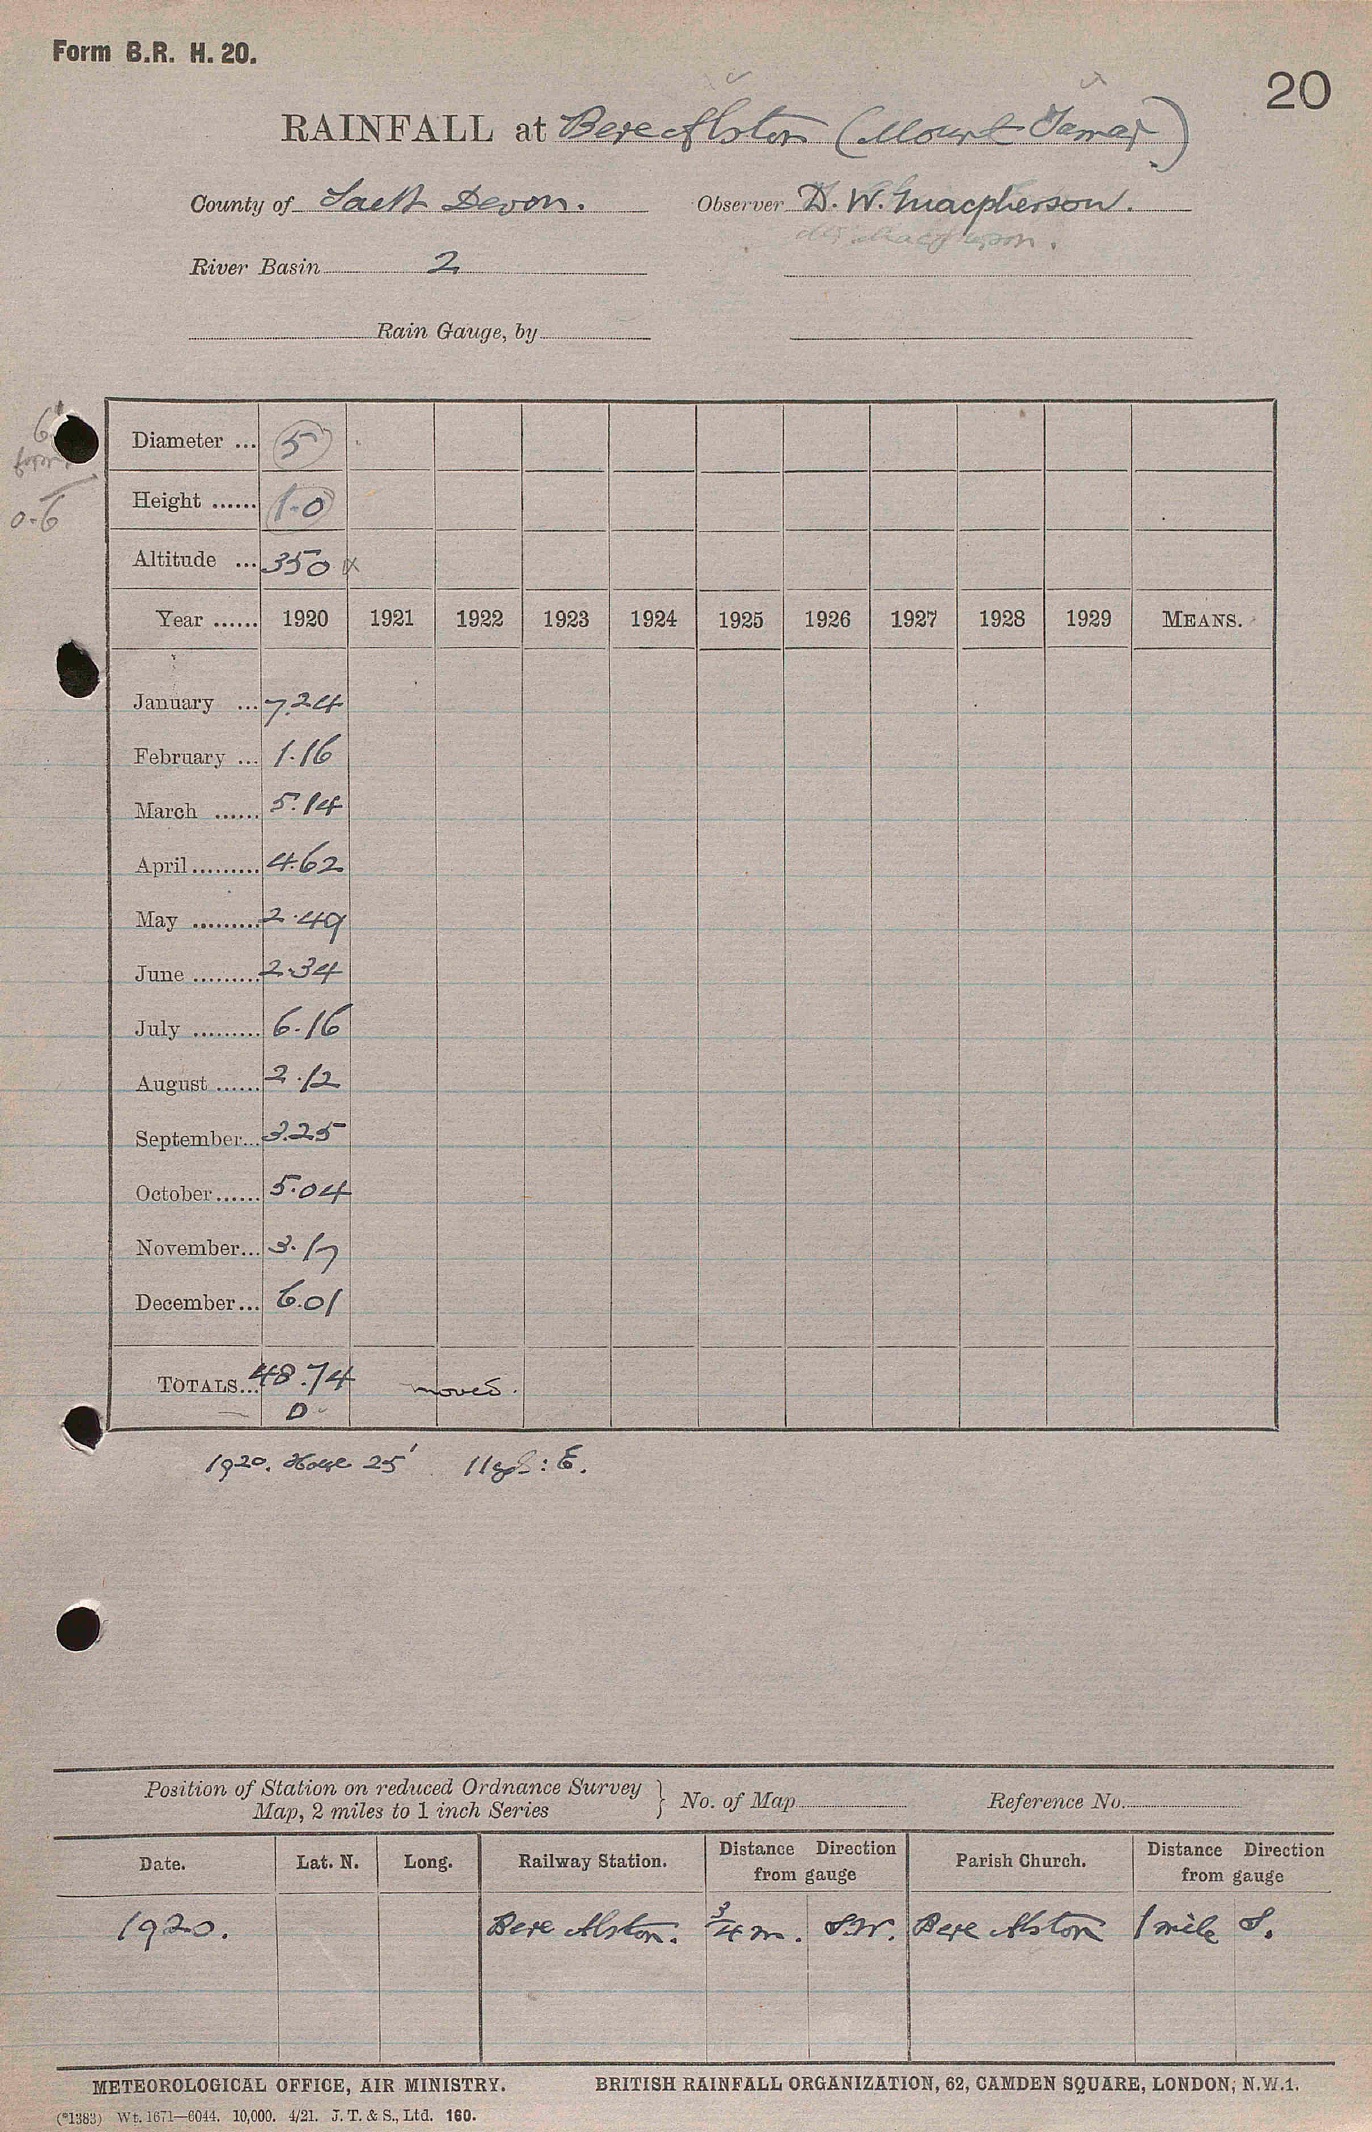 Form B.R. H. 20.
20
RAINFALL at Bere Alston (Mount Tamar)
County of Devon. Observer D. W. Macpherson.
River Basin 2
Rain Gauge, by
Diameter ... 5
Height ...... 1-0
0-6
Altitude ... 350
Year ...... 1920 1921 1922 1923 1924 1925 1926 1927 1928 1929 MEANS.
January ... 7.24
February ... 1.16
March ...... 5.14
April ......... 4.62
May ......... 2.49
June ......... 2.34
July ......... 6.16
August ...... 2.12
September... 3.25
October ...... 5.04
November... 3.17
December... 6.01
TOTALS... 48.74 moved.
D
1920. House 25' : E.
Position of Station on reduced Ordnance Survey
Map, 2 miles to 1 inch Series } No. of Map Reference No.
Date. Lat. N. Long. Railway Station. Distance Direction from gauge Parish Church. Distance Direction from gauge
1920. Bere Alston. 3/4 m. S.W. Bere Alston 1 mile S.
METEOROLOGICAL OFFICE, AIR MINISTRY. BRITISH RAINFALL ORGANIZATION, 62, CAMDEN SQUARE, LONDON, N.W.1.
(*1383) Wt. 1671—6044. 10,000. 4/21. J. T. & S., Ltd. 160.